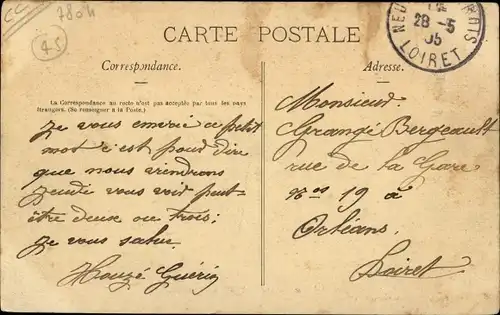 CC
7804
45
CARTE POSTALE
NEU
RAIS
28 -5
05
LOIRET
Correspondance.
Adresse.
La Correspondance au recto n'est pas acceptée par tous les pays
étrangers. (Se renseigner à la Poste.)
je vous envoie ce petit
mot c'est pour dire
que nous viendrons
jeudi vous voir peut-
être deux ou trois;
je vous salue.
Houzé Guérin
Monsieur.
Grangé Bergeault
rue de la Gare
nos 19 à
Orléans.
Loiret.